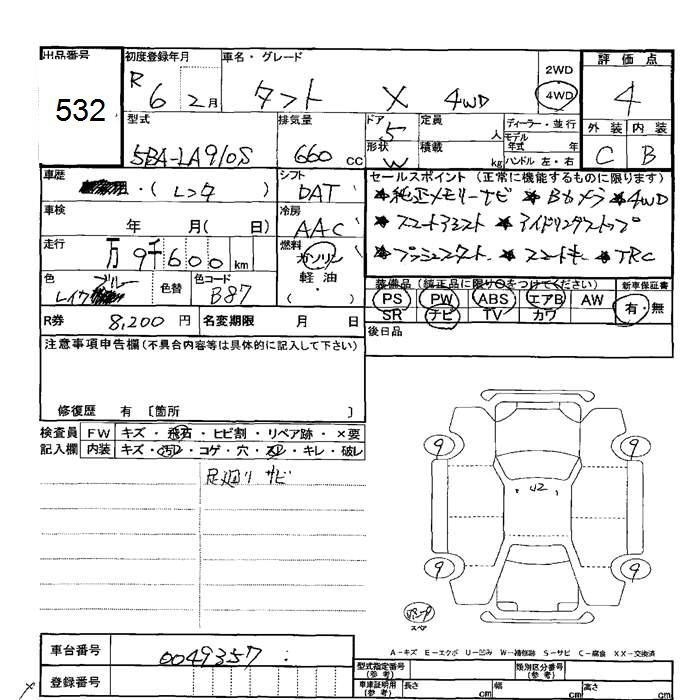 出品番号 初度登録年月 車名・グレード 評価点
532 R 6 2月 タント X 4WD 2WD 4WD 4
型式 排気量 ドア 定員 人 ディーラー・並行 外装 内装
5BA-LA910S 660 cc 5 モデル年式 年 C B
形状 W 積載 kg ハンドル 左・右
車歴 ・(レンタ) シフト DAT セールスポイント (正常に機能するものに限ります)
★純正メモリーナビ ★Bカメラ ★4WD
車検 年 月(日) 冷房 AAC
★スマートアシスト ★アイドリングストップ
走行 万 9千600 km 燃料 ガソリン 軽油 (・)
★プッシュスタート ★スマートキー ★TRC
色 ブルー 色替 色コード B87
装備品 (純正品に限り○をつけてください) 新車保証書
PS PW ABS エアB AW 有・無
SR ナビ TV カワ
R券 8,200 円 名変期限 月 日
後日品
注意事項申告欄 (不具合内容等は具体的に記入して下さい)
修復歴 有 〔箇所 〕
検査員記入欄 FW キズ・飛石・ヒビ割・リペア跡・×要
内装 キズ・汚レ・コゲ・穴・スレ・キレ・破レ
足廻りサビ
9 9
U2
9 9
スペア
A-キズ E-エクボ U-凹み W-補修跡 S-サビ C-腐食 XX-交換済
車台番号 0049357
型式指定番号(参考) 類別区分番号(参考)
登録番号
車庫証明用(参考) 長さ cm 幅 cm 高さ cm